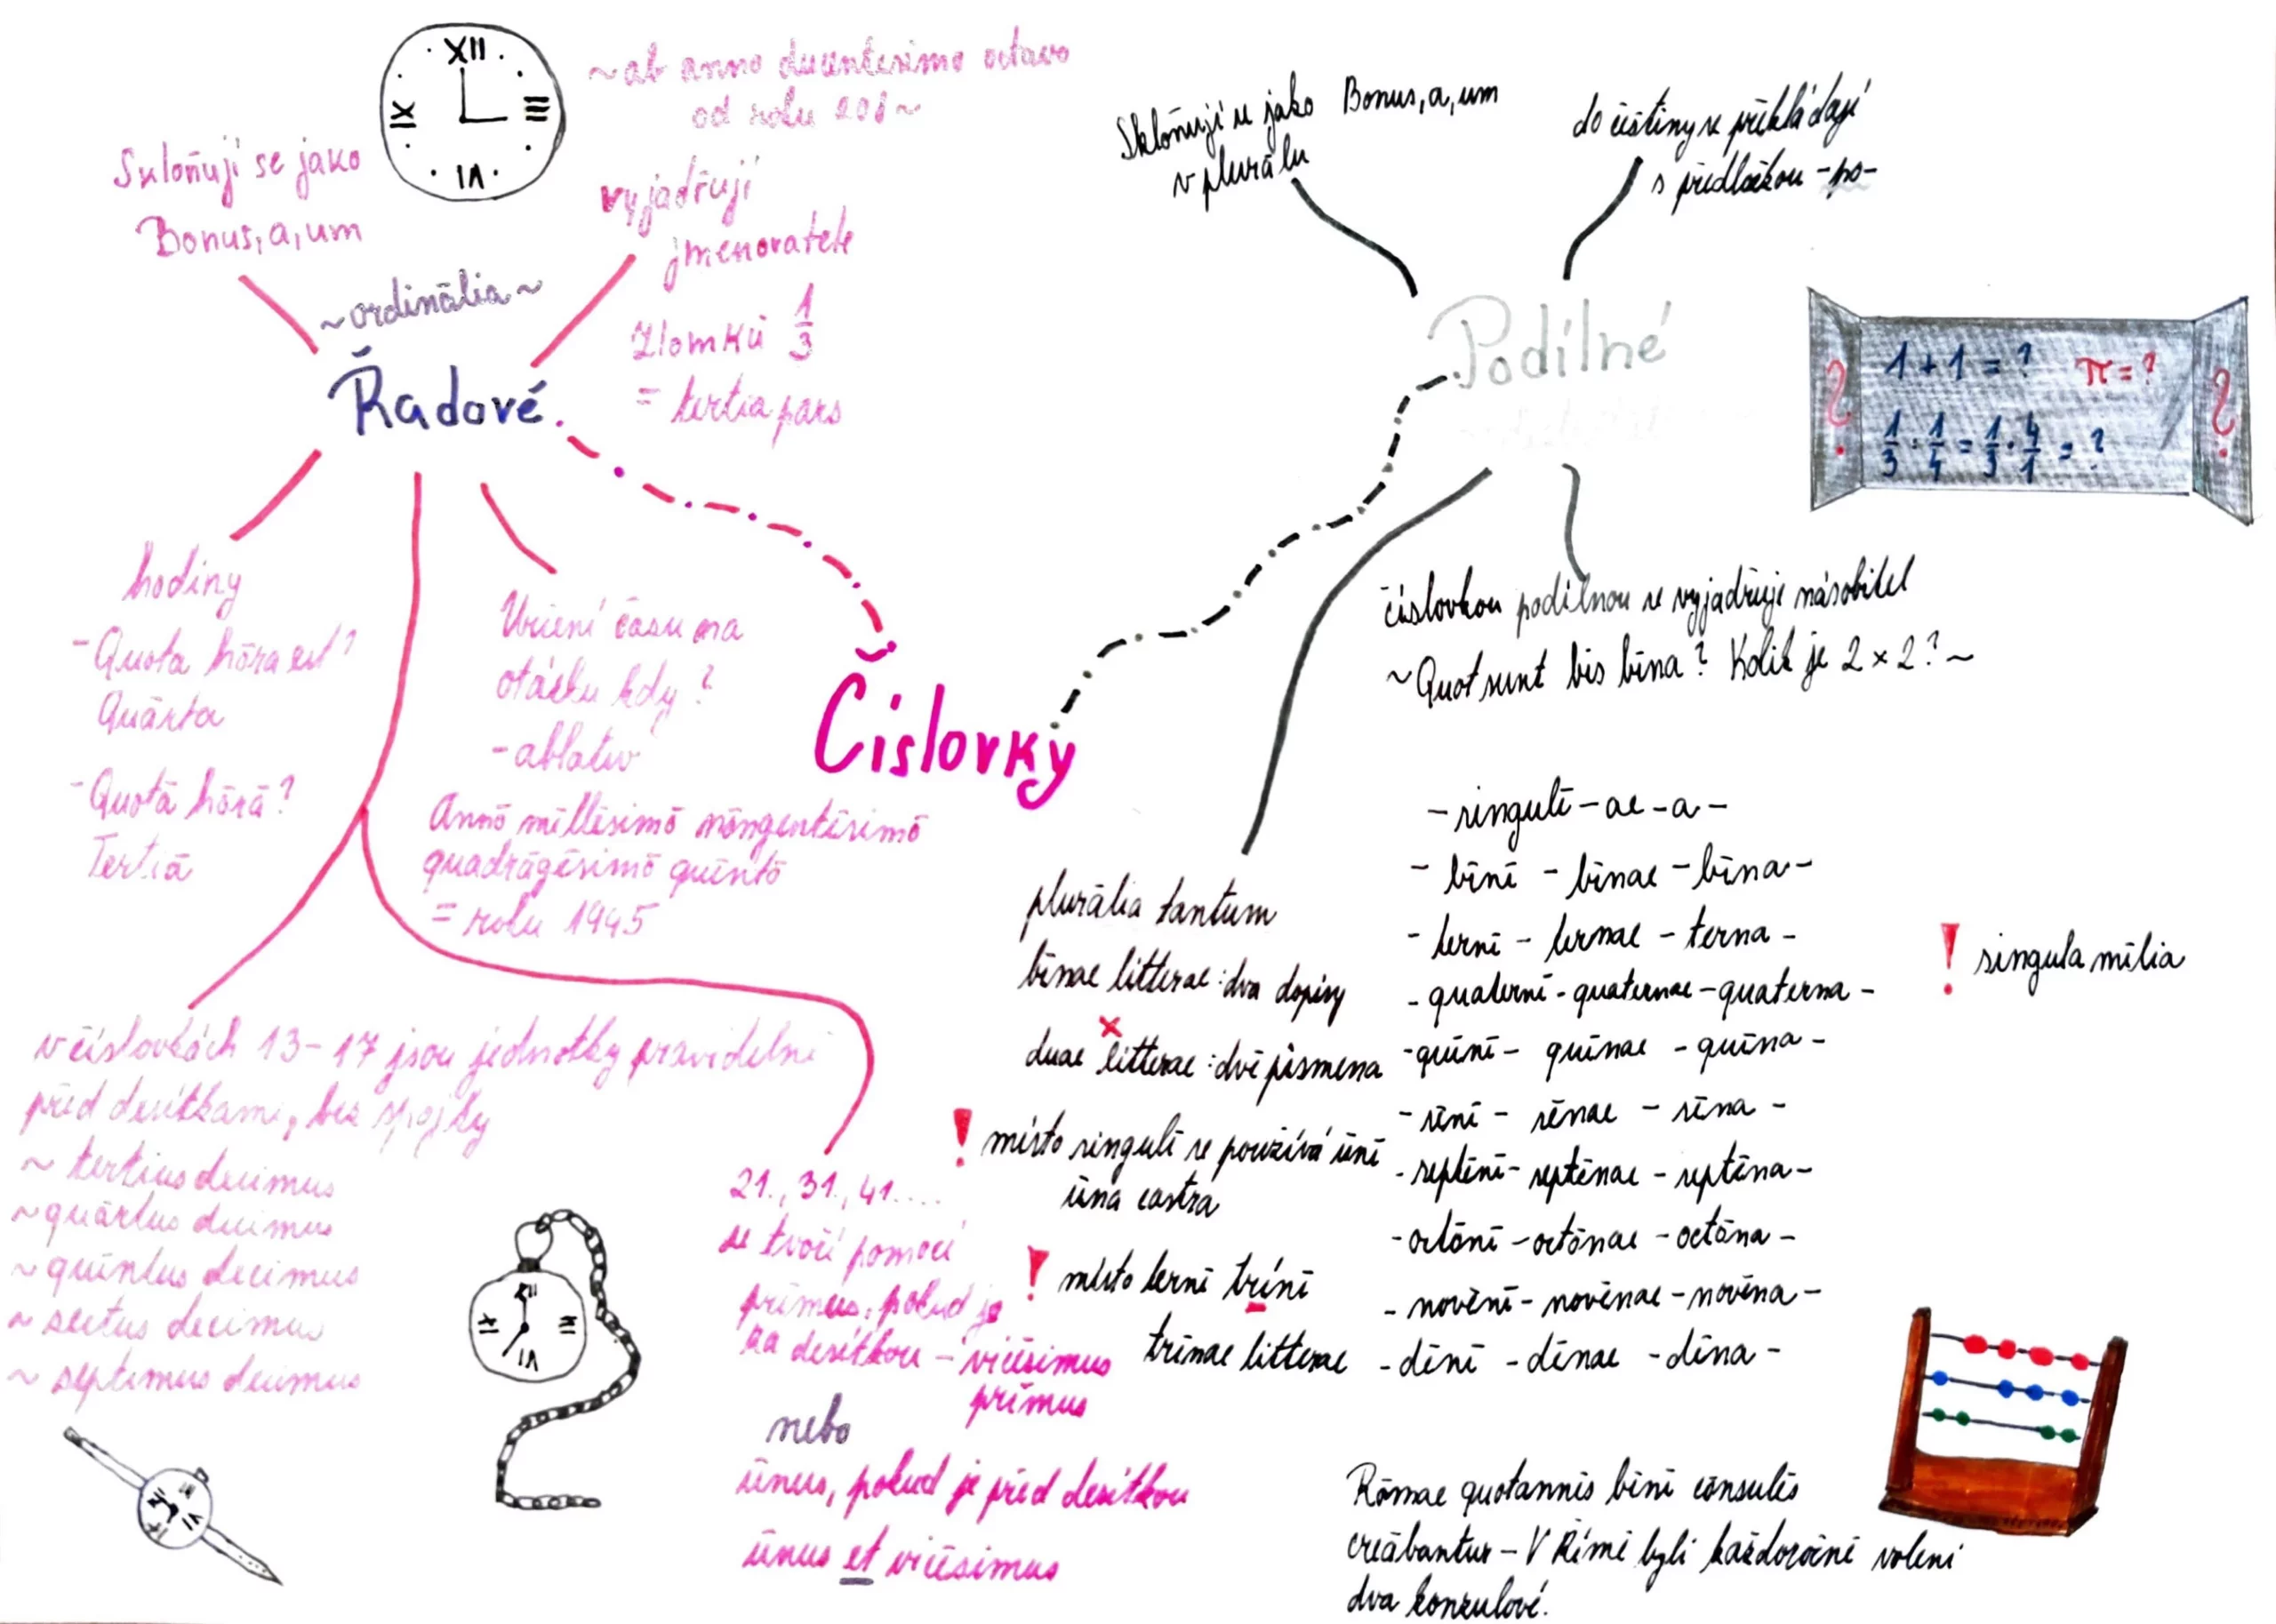 XII
III
VI
IX
~ab anno ducentesimo octavo
od roku 208~
Skloňují se jako
Bonus,a,um
vyjadřují
jmenovatele
zlomků 1/3
= tertia pars
~ordinālia~
Řadové
hodiny
- Quota hōra est?
Quārta
- Quotā hōrā?
Tertiā
Určení času na
otázku kdy?
- ablativ
Annō mīllēsimō nōngentēsimō
quadrāgēsimō quīntō
= roku 1945
v číslovkách 13-17 jsou jednotky pravidelně
před desítkami, bez spojky
~ tertius decimus
~ quārtus decimus
~ quīntus decimus
~ sextus decimus
~ septimus decimus
21., 31., 41....
se tvoří pomocí
prīmus, pokud je
za desítkou - vīcēsimus
prīmus
nebo
ūnus, pokud je před desítkou
ūnus et vīcēsimus
Číslovky
Skloňují se jako Bonus,a,um
v plurālu
do češtiny se překládají
s předložkou -po-
Podílné
1+1=? π=?
1/3 : 1/4 = 1/3 · 4/1 = ?
? ?
číslovkou podílnou se vyjadřuje násobitel
~Quot sunt bis bīna? Kolik je 2 x 2?~
plurālia tantum
bīnae litterae: dva dopisy
x
duae litterae: dvě písmena
! místo singulī se používá ūnī
ūna castra
! místo ternī trīnī
trīnae litterae
- singulī - ae - a -
- bīnī - bīnae - bīna -
- ternī - ternae - terna -
- quaternī - quaternae - quaterna -
- quīnī - quīnae - quīna -
- sēnī - sēnae - sēna -
- septēnī - septēnae - septēna -
- octōnī - octōnae - octōna -
- novēnī - novēnae - novēna -
- dēnī - dēnae - dēna -
! singula mīlia
Rōmae quotannīs bīnī cōnsulēs
creābantur - V Římě byli každoročně voleni
dva konzulové.